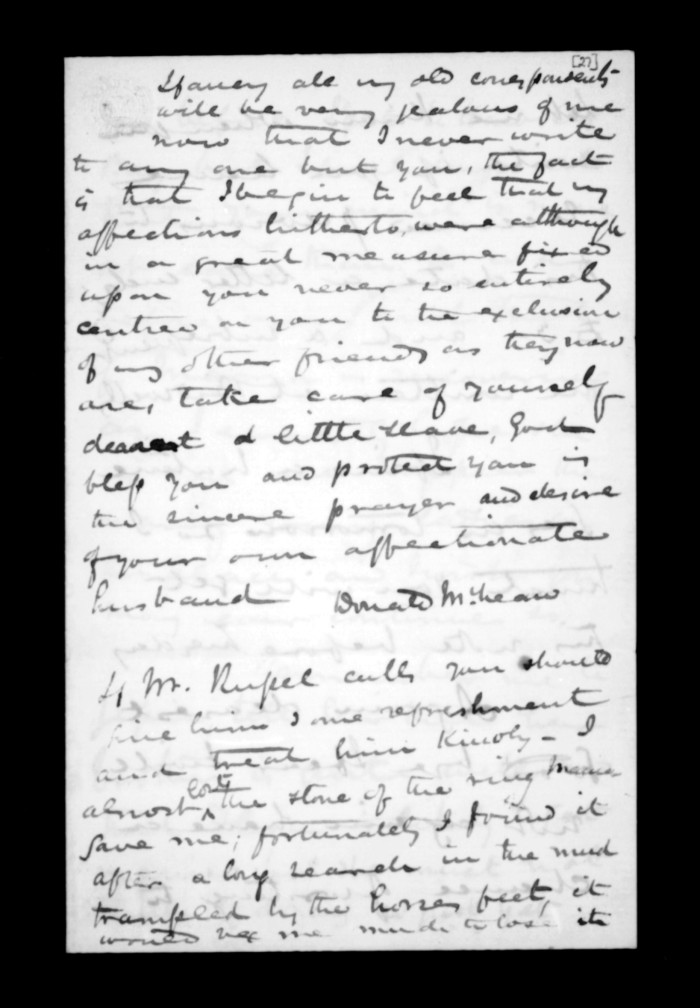 [27]
I fancy all my old correspondents
will be very jealous of me
now that I never write
to any one but you, the fact
is that I begin to feel that my
affections hitherto, were although
in a great measure fixed
upon you never so entirely
centred on you to the exclusion
of my other friends as they now
are, take care of yourself
dearest d little slave, God
bless you and protect you is
the sincere prayer and desire
of your own affectionate
husband Donald McLean
If Mr. Russel calls you should
give him some refreshment
and treat him kindly - I
almost lost the stone of the ring
gave me; fortunately I found it
after a long search in the mud
trampled by the horses feet, it
would vex me much to lose it